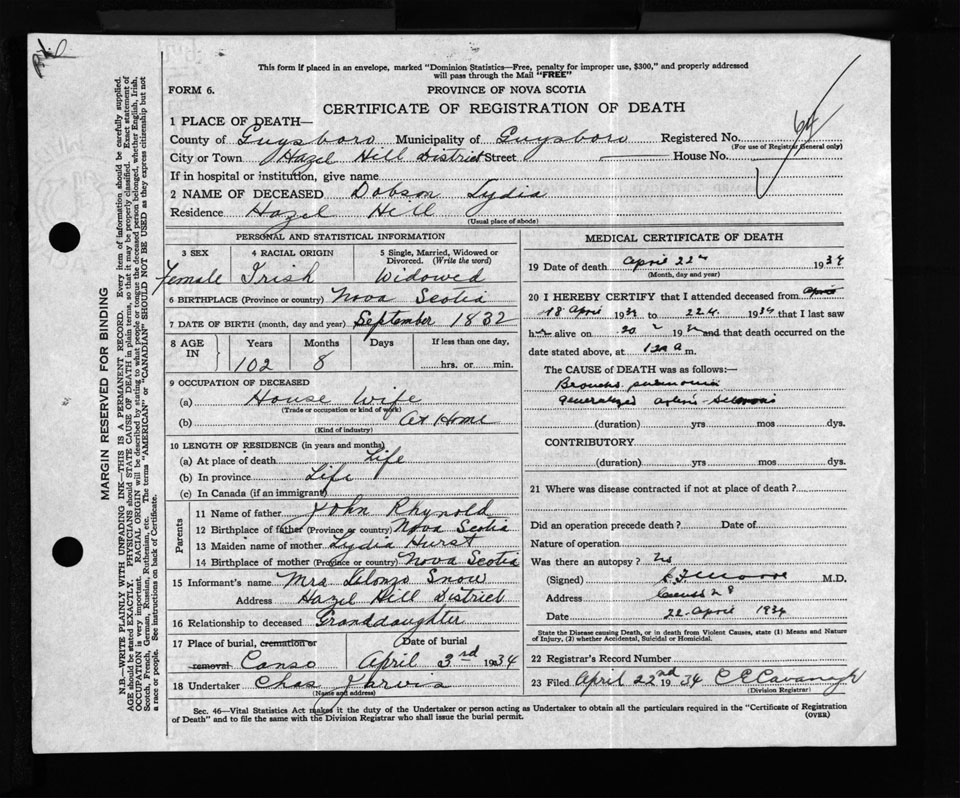 This form if placed in an envelope, marked "Dominion Statistics—Free, penalty for improper use, $300," and properly addressed
will pass through the Mail "FREE"
FORM 6. PROVINCE OF NOVA SCOTIA
CERTIFICATE OF REGISTRATION OF DEATH
1 PLACE OF DEATH—
County of Guysboro Municipality of Guysboro Registered No. 64
(For use of Registrar General only)
City or Town Hazel Hill District Street House No.
If in hospital or institution, give name
2 NAME OF DECEASED Dobson Lydia
Residence Hazel Hill
(Usual place of abode)
PERSONAL AND STATISTICAL INFORMATION
3 SEX 4 RACIAL ORIGIN 5 Single, Married, Widowed or Divorced. (Write the word)
Female Irish Widowed
6 BIRTHPLACE (Province or country) Nova Scotia
7 DATE OF BIRTH (month, day and year) September 1832
8 AGE IN Years Months Days If less than one day,
102 8 hrs. or min.
9 OCCUPATION OF DECEASED
(a) House Wife
(Trade or occupation or kind of work)
(b) At Home
(Kind of industry)
10 LENGTH OF RESIDENCE (in years and months)
(a) At place of death Life
(b) In province Life
(c) In Canada (if an immigrant)
Parents
11 Name of father John Rhynold
12 Birthplace of father (Province or country) Nova Scotia
13 Maiden name of mother Lydia Hurst
14 Birthplace of mother (Province or country) Nova Scotia
15 Informant's name Mrs Snow
Address Hazel Hill District
16 Relationship to deceased Granddaughter
17 Place of burial, cremation or removal Canso Date of burial April 3rd 1934
18 Undertaker Chas Jarvis
(Name and address)
MEDICAL CERTIFICATE OF DEATH
19 Date of death April 22nd 1934
(Month, day and year)
20 I HEREBY CERTIFY that I attended deceased from
18 April 1934 to 22 4 1934 that I last saw
h alive on 20 19 and that death occurred on
date stated above, at m.
The CAUSE of DEATH was as follows:—
Broncho pneumonia
generalized
(duration) yrs mos dys.
CONTRIBUTORY
(duration) yrs mos dys.
21 Where was disease contracted if not at place of death?
Did an operation precede death? Date of
Nature of operation
Was there an autopsy? No
(Signed) Moore M.D.
Address
Date 22 April 1934
State the Disease causing Death, or in death from Violent Causes, state (1) Means and Nature
of Injury, (2) whether Accidental, Suicidal or Homicidal.
22 Registrar's Record Number
23 Filed April 22nd 1934 C C Cavanagh
(Division Registrar)
Sec. 46—Vital Statistics Act makes it the duty of the Undertaker or person acting as Undertaker to obtain all the particulars required in the "Certificate of Registration
of Death" and to file the same with the Division Registrar who shall issue the burial permit. (OVER)
MARGIN RESERVED FOR BINDING
N.B.—WRITE PLAINLY WITH UNFADING INK—THIS IS A PERMANENT RECORD. Every item of information should be carefully supplied.
AGE should be stated EXACTLY. PHYSICIANS should STATE CAUSE OF DEATH in plain terms, so that it may be properly classified. Exact statement of
OCCUPATION is very important. RACIAL ORIGIN will be described by stating to what people or tongue the deceased person belonged, whether English, Irish,
Scotch, French, German, Russian, Ruthenian, etc. The terms "AMERICAN" or "CANADIAN" SHOULD NOT BE USED as they express citizenship but not
a race or people. See instructions on back of Certificate.